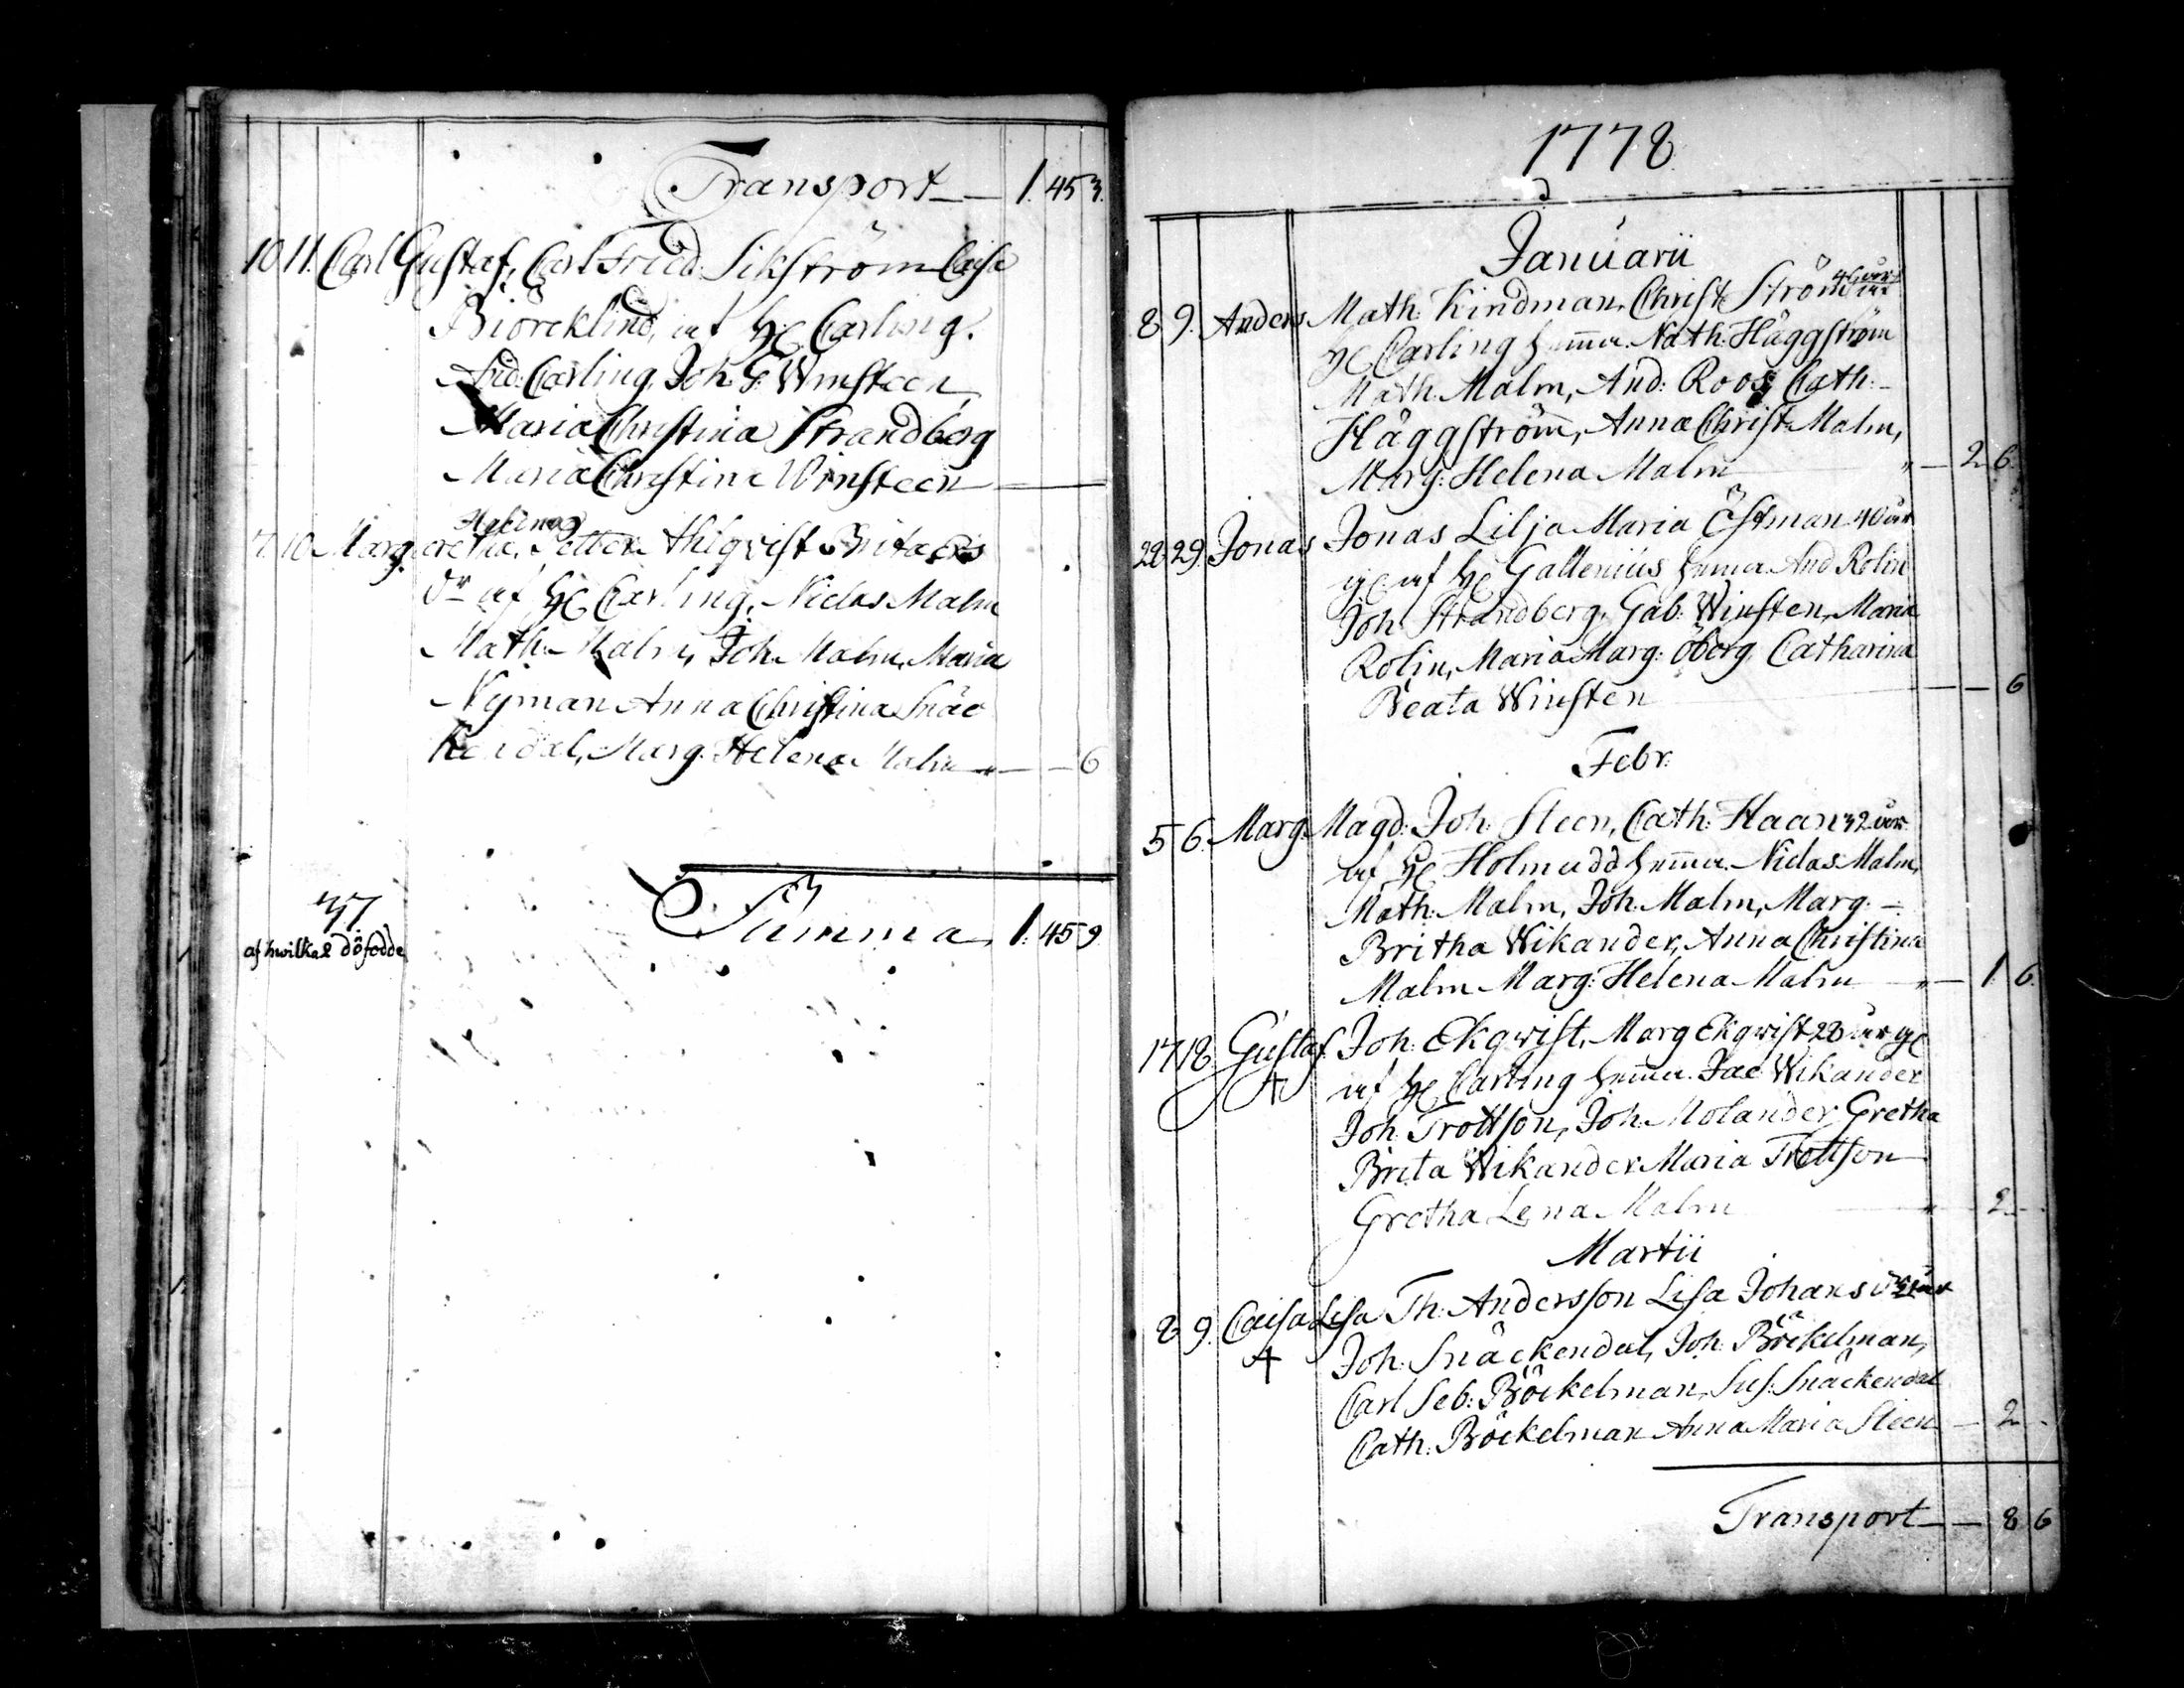 Transport 1. 45 3.
10 11. Carl Gustaf, Carl Fried. Sikström Caisa
Biörcklind, af H Carling.
And: Carling, Joh. G. Winsteen,
Maria Christina Strandberg
Maria Christina Winsteen
Helena
7. 10. Margaretha, Petter Ahlqvist Brita Ers
dr af H Carling, Niclas Malm
Math. Malm, Joh. Malm, Maria
Nyman Anna Christina Snäc
kendal, Marg. Helena Malm 6
37 Summa 1. 45 9
af hwilka 2 döfödde
1778
Januarii
8 9. Anders Math. Kindman, Christ. Ström 46 år
H Carling hemma. Nath. Häggström
Math. Malm, And: Roos, Cath:
Häggström, Anna Christ. Malm,
Marg: Helena Malm 2 6.
28 29. Jonas Jonas Lilja Maria Östman 40 år
af H Gallenius hemma And Rolin
Joh. Strandberg, Gab: Winsten, Maria
Rolin, Maria Marg: Öberg Catharina
Beata Winsten 6
Febr:
5 6. Marg: Magd: Joh: Steen, Cath: Haan 32 år
af H Holmudd hemma. Niclas Malm,
Math: Malm, Joh: Malm, Marg:
Britha Wikander, Anna Christina
Malm Marg: Helena Malm 1. 6.
17 18. Gustaf. Joh: Ekqvist, Marg Ekqvist 28 år
af H Carling hemma. Jac: Wikander
Joh: Trottson, Joh: Molander Gretha
Brita Wikander Maria Trottson
Gretha Lena Malm 2
Martii
8 9. Caisa Lisa Th: Andersson Lisa Johansdr
Joh: Snäckendal, Joh: Böckelman,
Carl Seb: Böckelman, Sus: Snäckendal
Cath: Böckelman Anna Maria Steen 2
Transport 8 6